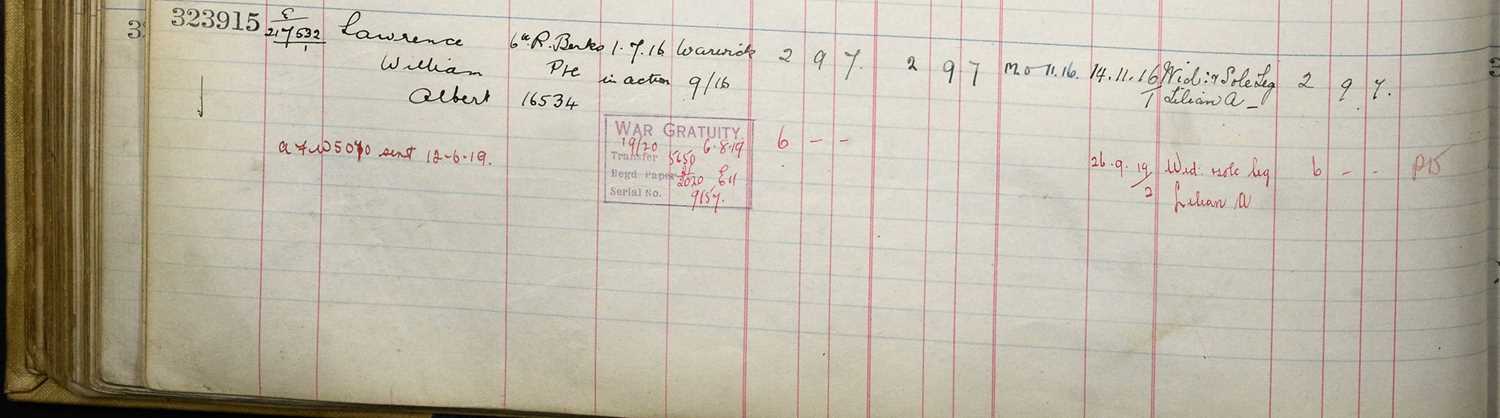 323915 E/217532/1 Lawrence 6th R. Berks 1.7.16 Warwick 2 9 7. 2 9 7 Mo 11.16. 14.11.16 Wid: & Sole Leg 2 9 7.
William Pte in action 9/16 1 Lilian A -
Albert 16534
WAR GRATUITY. 6 - -
19/20 6.8.19
a 7 W5070 sent 12-6-19. Transfer 5650 26.9.19 Wid. sole leg 6 - - P15
Regd Paper 2020
Serial No. 9157. 2 Lilian A